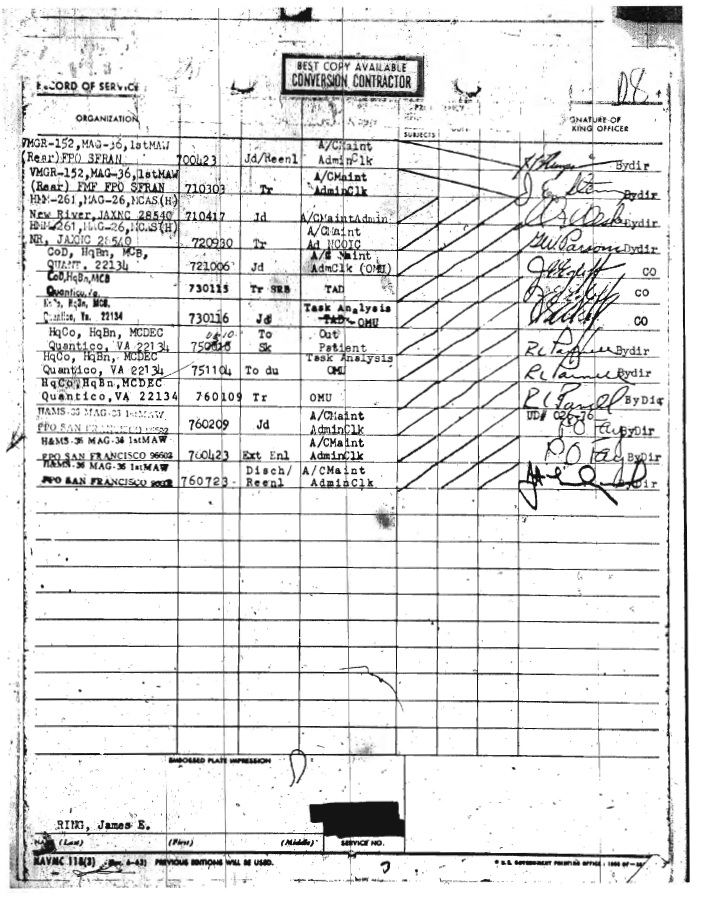 D8
BEST COPY AVAILABLE
CONVERSION CONTRACTOR
RECORD OF SERVICE
ORGANIZATION
SUBJECTS
SIGNATURE OF
KING OFFICER
VMGR-152,MAG-36,1stMAW A/CMaint
(Rear)FPO SFRAN 700423 Jd/Reenl AdminClk Bydir
VMGR-152,MAG-36,1stMAW A/CMaint
(Rear) FMF FPO SFRAN 710303 Tr AdminClk Bydir
HMM-261,MAG-26,MCAS(H)
New River,JAXNC 28540 710417 Jd A/CMaintAdmin Bydir
HMM-261,MAG-26,MCAS(H) A/CMaint
NR, JAXNC 28540 720930 Tr Ad NCOIC Bydir
CoD, HqBn, MCB, A/C Maint
QUANT. 22134 721006 Jd AdmClk (OMU) CO
CoD,HqBn,MCB
Quantico,Va. 730115 Tr SRB TAD CO
HqBn, MCB, Task Analysis
Quantico, Va. 22134 730116 Jd TAD OMU CO
HqCo, HqBn, MCDEC To Out
Quantico, VA 22134 Sk Patient Bydir
HqCo, HqBn, MCDEC Task Analysis
Quantico, VA 22134 751104 To du OMU Bydir
HqCo,HqBn,MCDEC
Quantico,VA 22134 760109 Tr OMU ByDir
H&MS-36 MAG-36 1stMAW A/CMaint UD# 026-76
FPO SAN FRANCISCO 96602 760209 Jd AdminClk ByDir
H&MS-36 MAG-36 1stMAW A/CMaint
FPO SAN FRANCISCO 96602 760423 Ext Enl AdminClk ByDir
H&MS-36 MAG-36 1stMAW Disch/ A/CMaint
FPO SAN FRANCISCO 96602 760723 Reenl AdminClk ByDir
EMBOSSED PLATE IMPRESSION
RING, James E.
NAME (Last) (First) (Middle) SERVICE NO.
NAVMC 118(3) (Rev. 6-62) PREVIOUS EDITIONS WILL BE USED.
U.S. GOVERNMENT PRINTING OFFICE